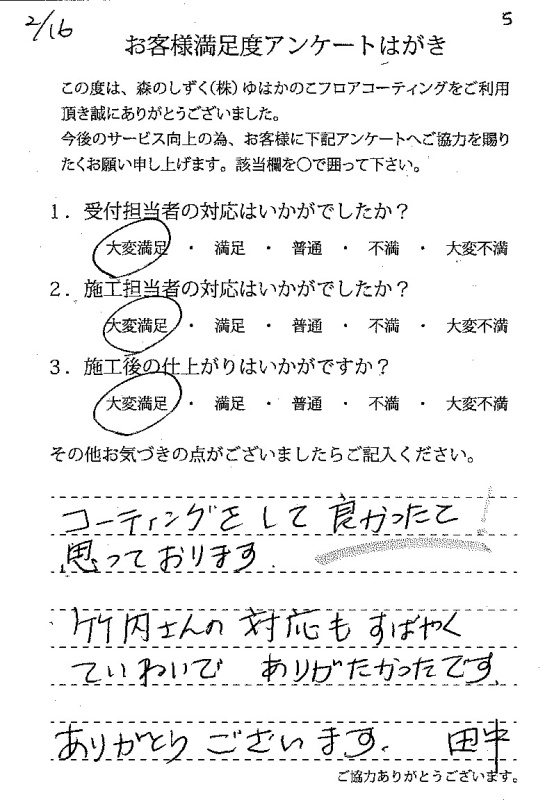 2/16
5
お客様満足度アンケートはがき
この度は、森のしずく(株)ゆはかのこフロアコーティングをご利用
頂き誠にありがとうございました。
今後のサービス向上の為、お客様に下記アンケートへご協力を賜り
たくお願い申し上げます。該当欄を〇で囲って下さい。
1．受付担当者の対応はいかがでしたか？
大変満足 ・ 満足 ・ 普通 ・ 不満 ・ 大変不満
2．施工担当者の対応はいかがでしたか？
大変満足 ・ 満足 ・ 普通 ・ 不満 ・ 大変不満
3．施工後の仕上がりはいかがですか？
大変満足 ・ 満足 ・ 普通 ・ 不満 ・ 大変不満
その他お気づきの点がございましたらご記入ください。
コーティングをして良かったと!
思っております.
竹内さんの対応もすばやく
ていねいで ありがたかったです.
ありがとうございます. 田中
ご協力ありがとうございます。